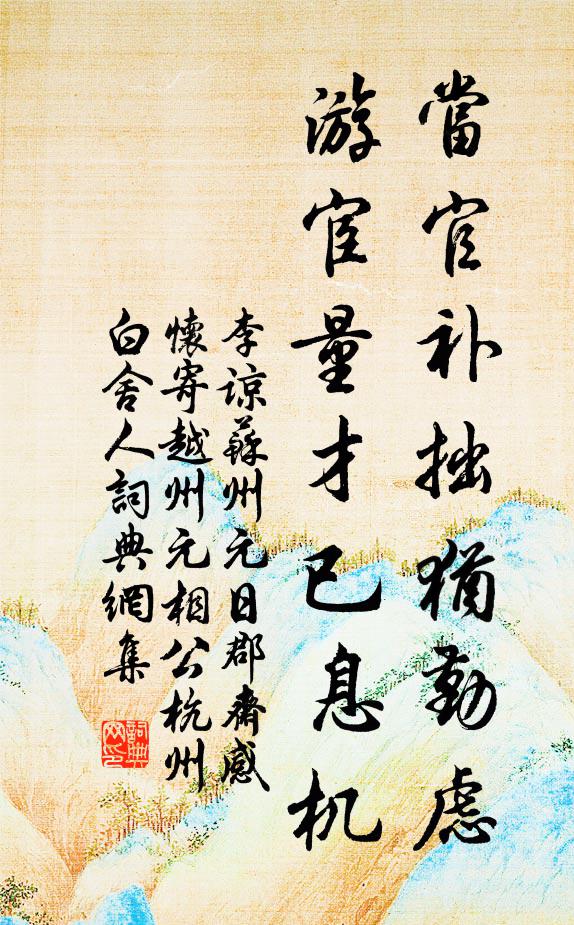 當官补拙猶勤慮
游宦量才已息机
李諒蘇州元日郡齋感
懷寄越州元相公杭州
白舍人詞典網集
詞典网印